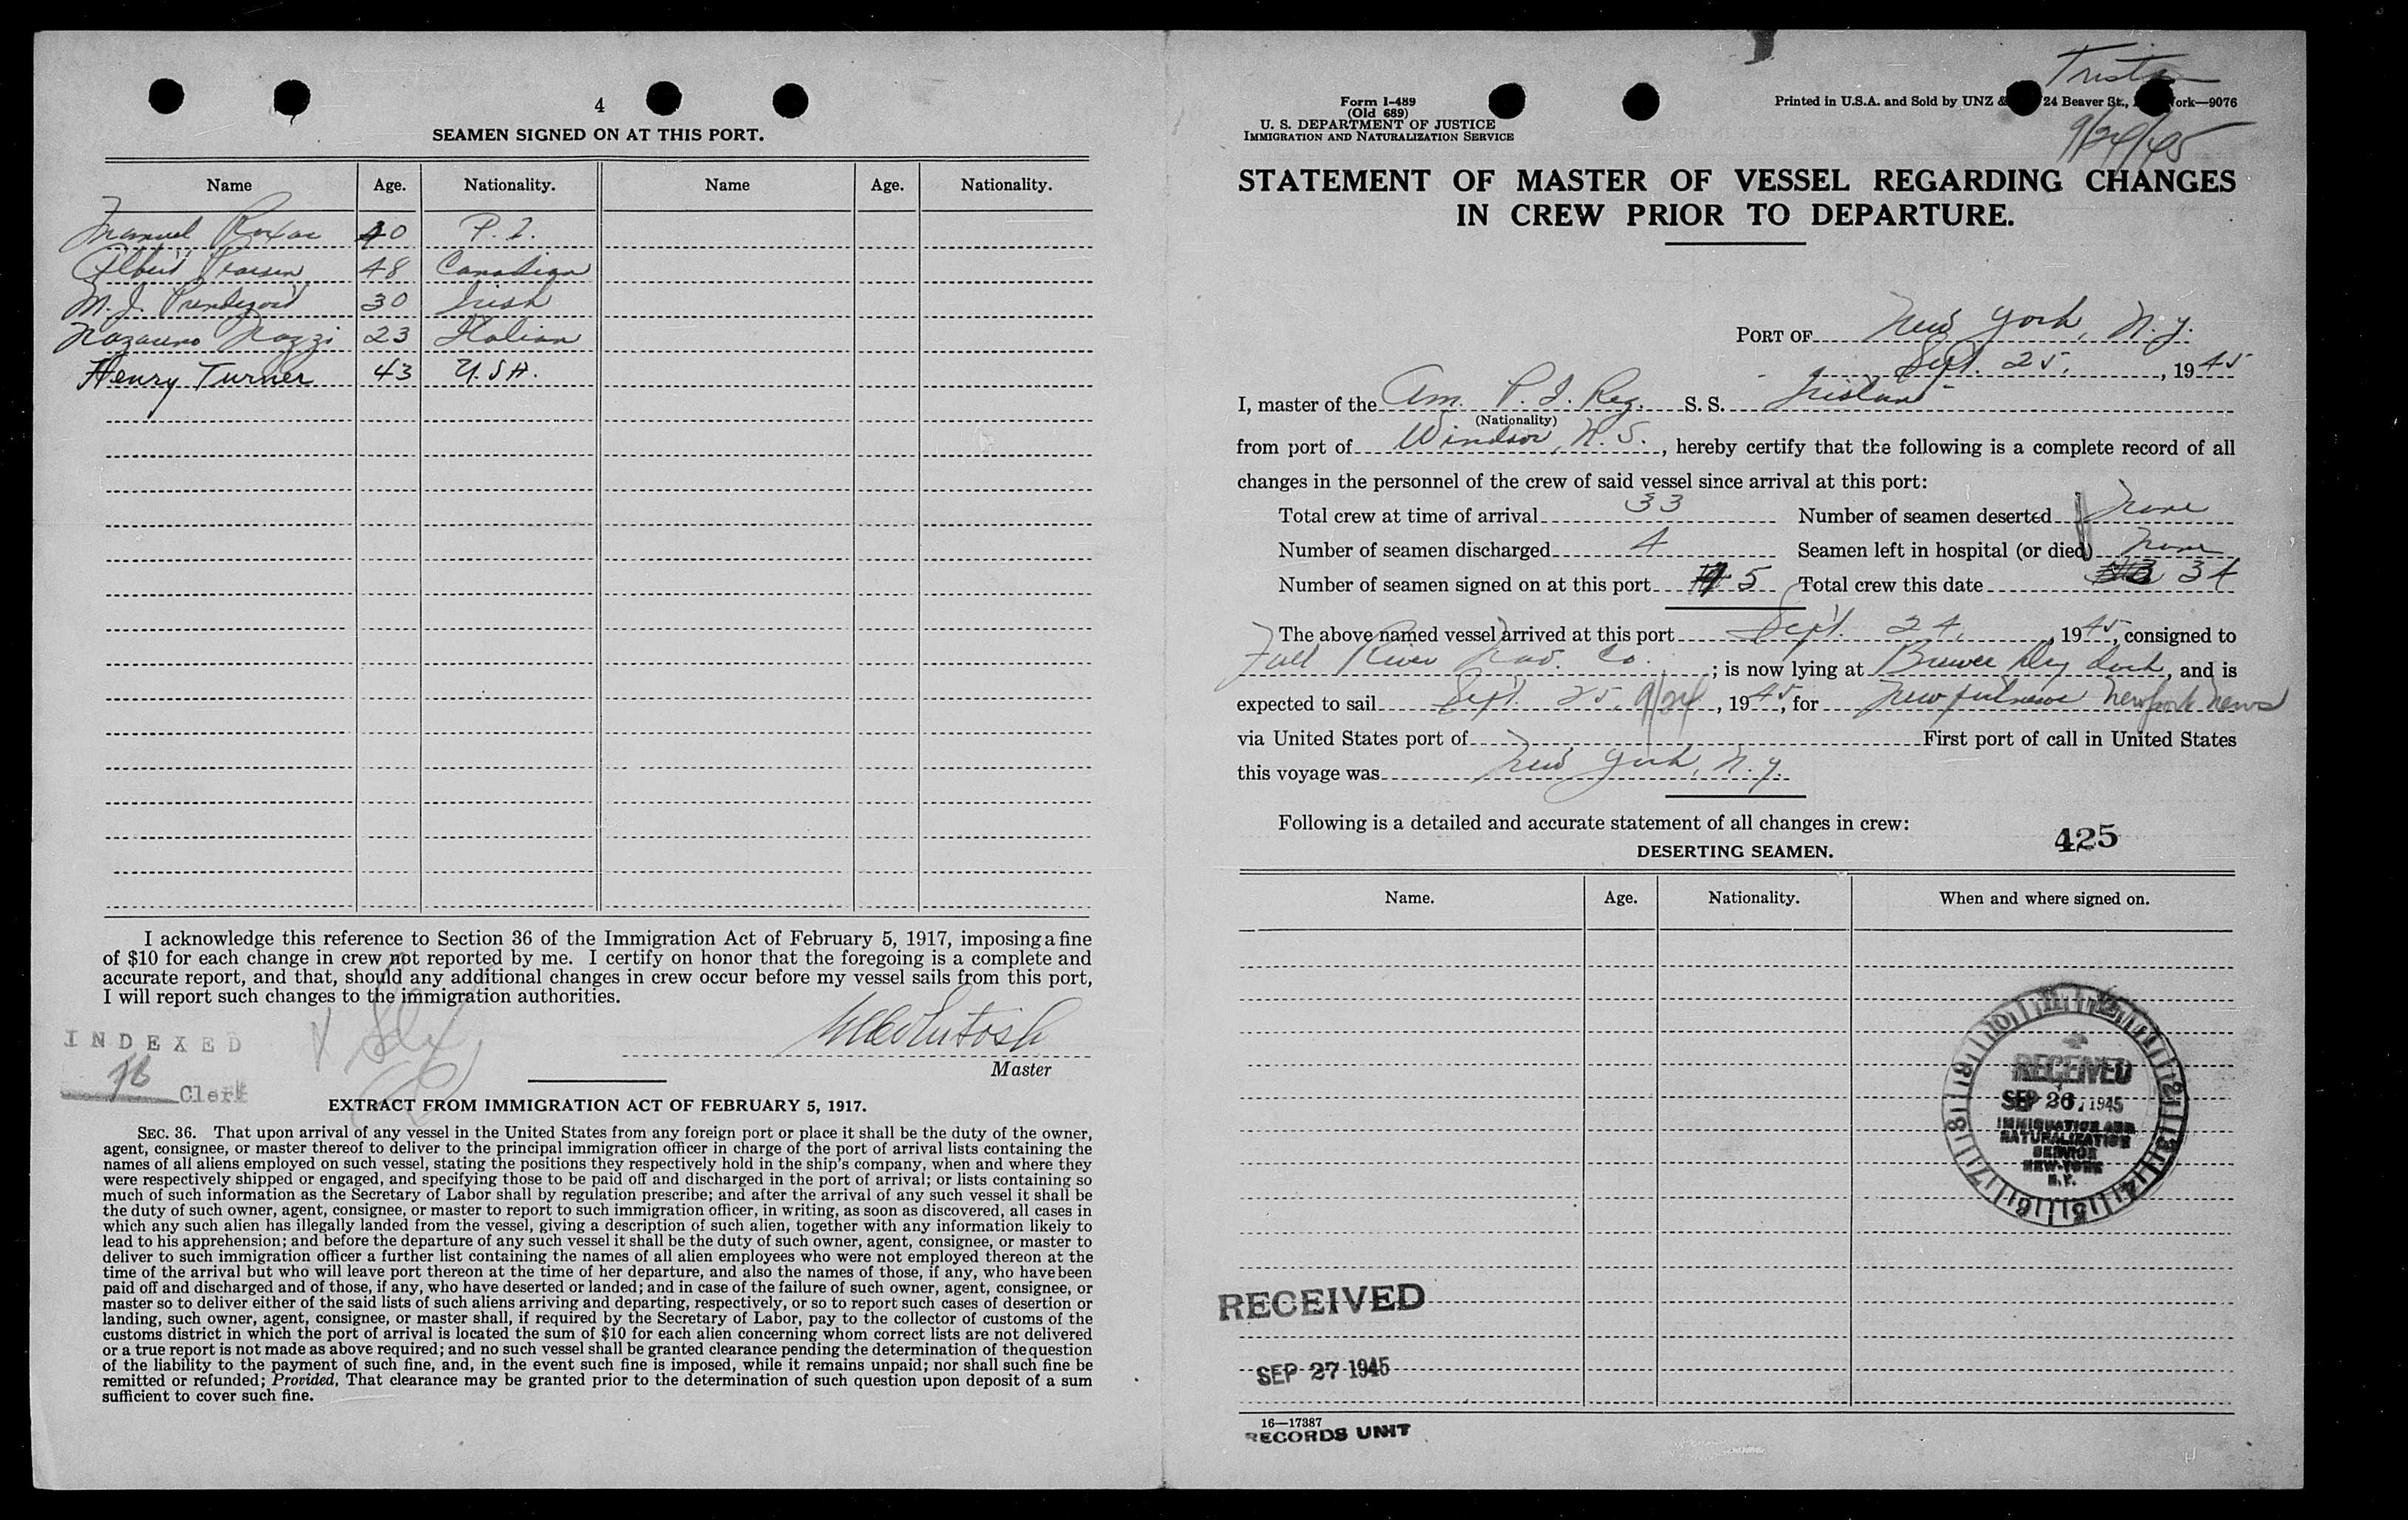 4
SEAMEN SIGNED ON AT THIS PORT.
Name Age. Nationality. Name Age. Nationality.
Manuel 40 P. I.
Albert 48 Canadian
M. J. 30 Irish
Nazareno 23 Italian
Henry Turner 43 U.S.A.
I acknowledge this reference to Section 36 of the Immigration Act of February 5, 1917, imposing a fine
of $10 for each change in crew not reported by me. I certify on honor that the foregoing is a complete and
accurate report, and that, should any additional changes in crew occur before my vessel sails from this port,
I will report such changes to the immigration authorities.
INDEXED
Clerk
Master
EXTRACT FROM IMMIGRATION ACT OF FEBRUARY 5, 1917.
SEC. 36. That upon arrival of any vessel in the United States from any foreign port or place it shall be the duty of the owner,
agent, consignee, or master thereof to deliver to the principal immigration officer in charge of the port of arrival lists containing the
names of all aliens employed on such vessel, stating the positions they respectively hold in the ship's company, when and where they
were respectively shipped or engaged, and specifying those to be paid off and discharged in the port of arrival; or lists containing so
much of such information as the Secretary of Labor shall by regulation prescribe; and after the arrival of any such vessel it shall be
the duty of such owner, agent, consignee, or master to report to such immigration officer, in writing, as soon as discovered, all cases in
which any such alien has illegally landed from the vessel, giving a description of such alien, together with any information likely to
lead to his apprehension; and before the departure of any such vessel it shall be the duty of such owner, agent, consignee, or master to
deliver to such immigration officer a further list containing the names of all alien employees who were not employed thereon at the
time of the arrival but who will leave port thereon at the time of her departure, and also the names of those, if any, who have been
paid off and discharged and of those, if any, who have deserted or landed; and in case of the failure of such owner, agent, consignee, or
master so to deliver either of the said lists of such aliens arriving and departing, respectively, or so to report such cases of desertion or
landing, such owner, agent, consignee, or master shall, if required by the Secretary of Labor, pay to the collector of customs of the
customs district in which the port of arrival is located the sum of $10 for each alien concerning whom correct lists are not delivered
or a true report is not made as above required; and no such vessel shall be granted clearance pending the determination of the question
of the liability to the payment of such fine, and, in the event such fine is imposed, while it remains unpaid; nor shall such fine be
remitted or refunded; Provided, That clearance may be granted prior to the determination of such question upon deposit of a sum
sufficient to cover such fine.
Form I-489
(Old 689)
U. S. DEPARTMENT OF JUSTICE
IMMIGRATION AND NATURALIZATION SERVICE
Printed in U.S.A. and Sold by UNZ & 24 Beaver St., ork—9076
STATEMENT OF MASTER OF VESSEL REGARDING CHANGES
IN CREW PRIOR TO DEPARTURE.
PORT OF New York, N.Y.
Sept. 25, , 1945
I, master of the Am. P. I. Reg. S. S. Tristan
(Nationality)
from port of Windsor, N. S. , hereby certify that the following is a complete record of all
changes in the personnel of the crew of said vessel since arrival at this port:
Total crew at time of arrival 33 Number of seamen deserted None
Number of seamen discharged 4 Seamen left in hospital (or died) None
Number of seamen signed on at this port 5 Total crew this date 34
The above named vessel arrived at this port Sept. 24, , 1945, consigned to
Fall River Nav. Co. ; is now lying at Brewer Dry dock, and is
expected to sail Sept. 25, , 1945, for Newport News
via United States port of First port of call in United States
this voyage was New York, N.Y.
Following is a detailed and accurate statement of all changes in crew:
425
DESERTING SEAMEN.
Name. Age. Nationality. When and where signed on.
RECEIVED
SEP 26 1945
IMMIGRATION AND
NATURALIZATION
SERVICE
NEW YORK
N.Y.
RECEIVED
SEP 27 1945
16—17387
RECORDS UNIT